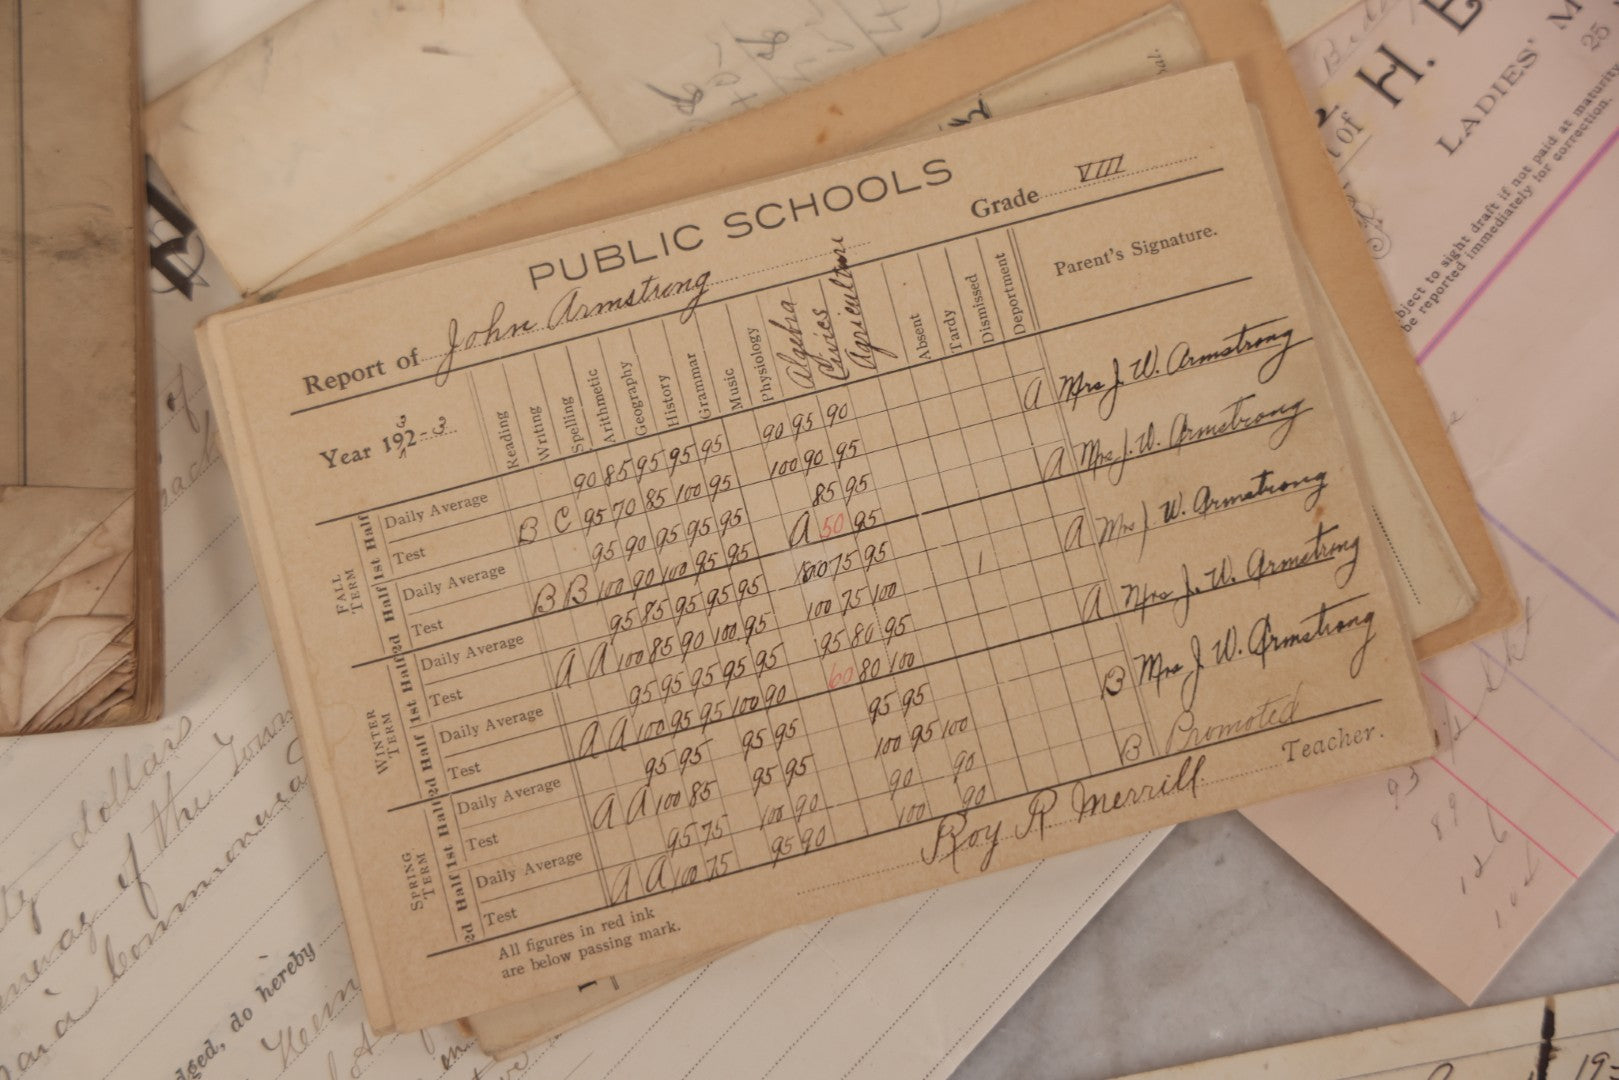 PUBLIC SCHOOLS
Report of John Armstrong Grade VIII
Year 1922-3 3
Reading Writing Spelling Arithmetic Geography History Grammar Music Physiology Algebra Civics Agriculture Absent Tardy Dismissed Deportment Parent's Signature.
FALL TERM
1st Half
Daily Average 90 85 95 95 95 90 95 90
Test B C 95 70 85 100 95 100 90 95 A Mrs J. W. Armstrong
2d Half
Daily Average 95 90 95 95 95 85 95
Test B B 100 90 100 85 95 A 50 95 A Mrs J. W. Armstrong
WINTER TERM
1st Half
Daily Average 95 85 95 95 95 100 75 95
Test A A 100 85 90 100 95 100 75 100 1 A Mrs J. W. Armstrong
2d Half
Daily Average 95 95 95 95 95 95 80 95
Test A A 100 95 95 100 90 60 80 100 A Mrs J. W. Armstrong
SPRING TERM
1st Half
Daily Average 95 95 95 95 95 95
Test A A 100 85 95 95 100 95 100 B Mrs J. W. Armstrong
2d Half
Daily Average 95 75 100 90 90 90
Test A A 100 75 95 90 100 90 B Promoted
All figures in red ink
are below passing mark.
Roy R Merrill Teacher.
of H. E
LADIES' M
25
bject to sight draft if not paid at maturity
be reported immediately for correction.
93
89
126
102
dollars
of the
do hereby